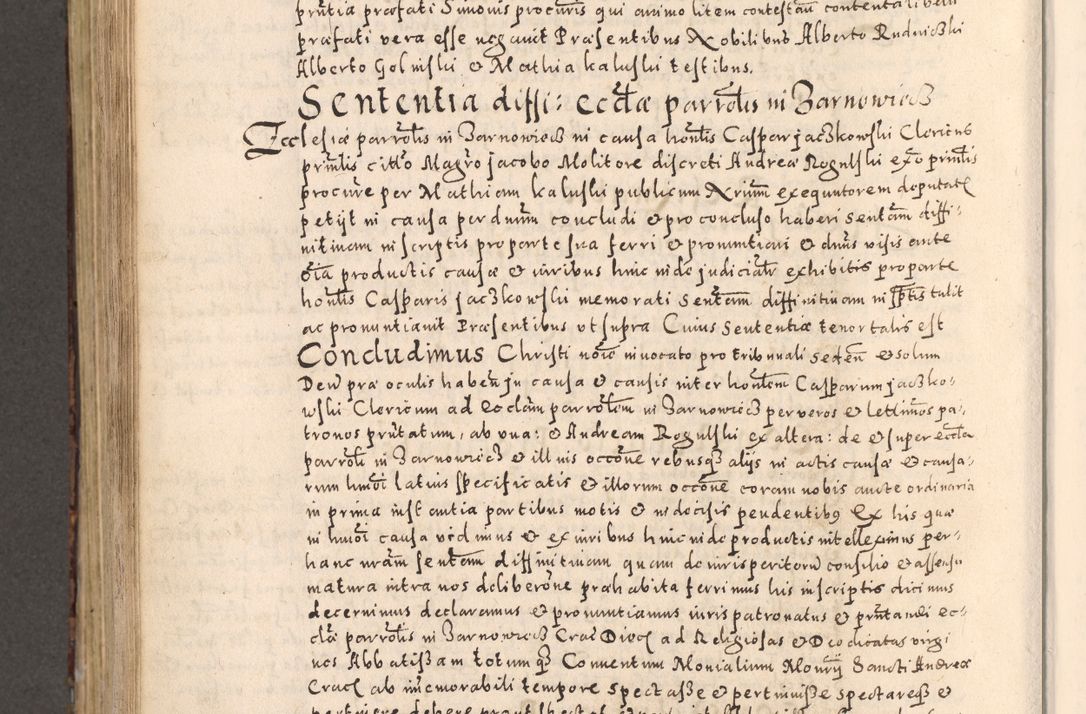 prńtia præfati Simonis procuris qui animo litem contestań contenta libelli
præfati vera esse negavit Præsentibus Nobilibus Alberto Rudnicʒki
Alberto Golinski & Mathia kaluski testibus.
Sententia diffi: eccłæ parrołis in Żarnowiecʒ
Ecclesiæ parrołis in Żarnowiecʒ in causa honłis Caspar jacʒkowski Clericus
prinłis citto Magro jacobo Molitore discreti Andreæ Rogulski exō prinłis
procure per Mathiam kaluski publicum Nrium exequutorem deputatę
petijt in causa per dnum concludi & pro concluso haberi Sentam diffi:
nitivam in scriptis pro parte sua ferri & pronuntiari & dnus visis ante
oīa productis causæ & iuribus hinc inde judicialr exhibitis pro parte
honłis Casparis jacʒkowski memorati Sentam diffinitivam in sptis tulit
ac pronuntiavit Præsentibus ut supra Cuius Sententiæ tenor talis est
Concludimus Christi noīe invocato pro tribunali Sedeń & solum
Deum præ oculis habeń in causa & causis inter honłem Casparum jacʒko-
wski Clericum ad ecclam parrołem in Żarnowiecʒ per veros & lettimos pa-
tronos prńtatum, ab una: & Andream Rogulski ex altera: de & super eccła
parrołi in Żarnowiecʒ & illius occōne rebusqʒ alijs in actis causæ & causa-
rum hmōi latius specificatis & illorum occōne coram nobis aucte ordinaria
in prima instantia partibus motis & indecisis pendentibꝰ Ex his quæ
in hmōi causa vidimus & ex iuribus hinc inde productis intelleximus per-
hanc nram sentem diffinitivam quam de iurisperitoru consilio & assensu
matura intra nos deliberōne præhabita ferrimus his in scriptis dicimus
decernimus declaramus & pronuntiamus iurispatronatus & prńtandi ec-
cłæ parrołis in Żarnowiecʒ Crać Dioć ad Religiosas & Deo dicatas virgi
nes Abbatißam totumqʒ Conventum Monialium Monrij Sancti Andreæ
Cracć ab immemorabili tempore spectaße & pertinuiße spectareqʒ &
pertinere debere